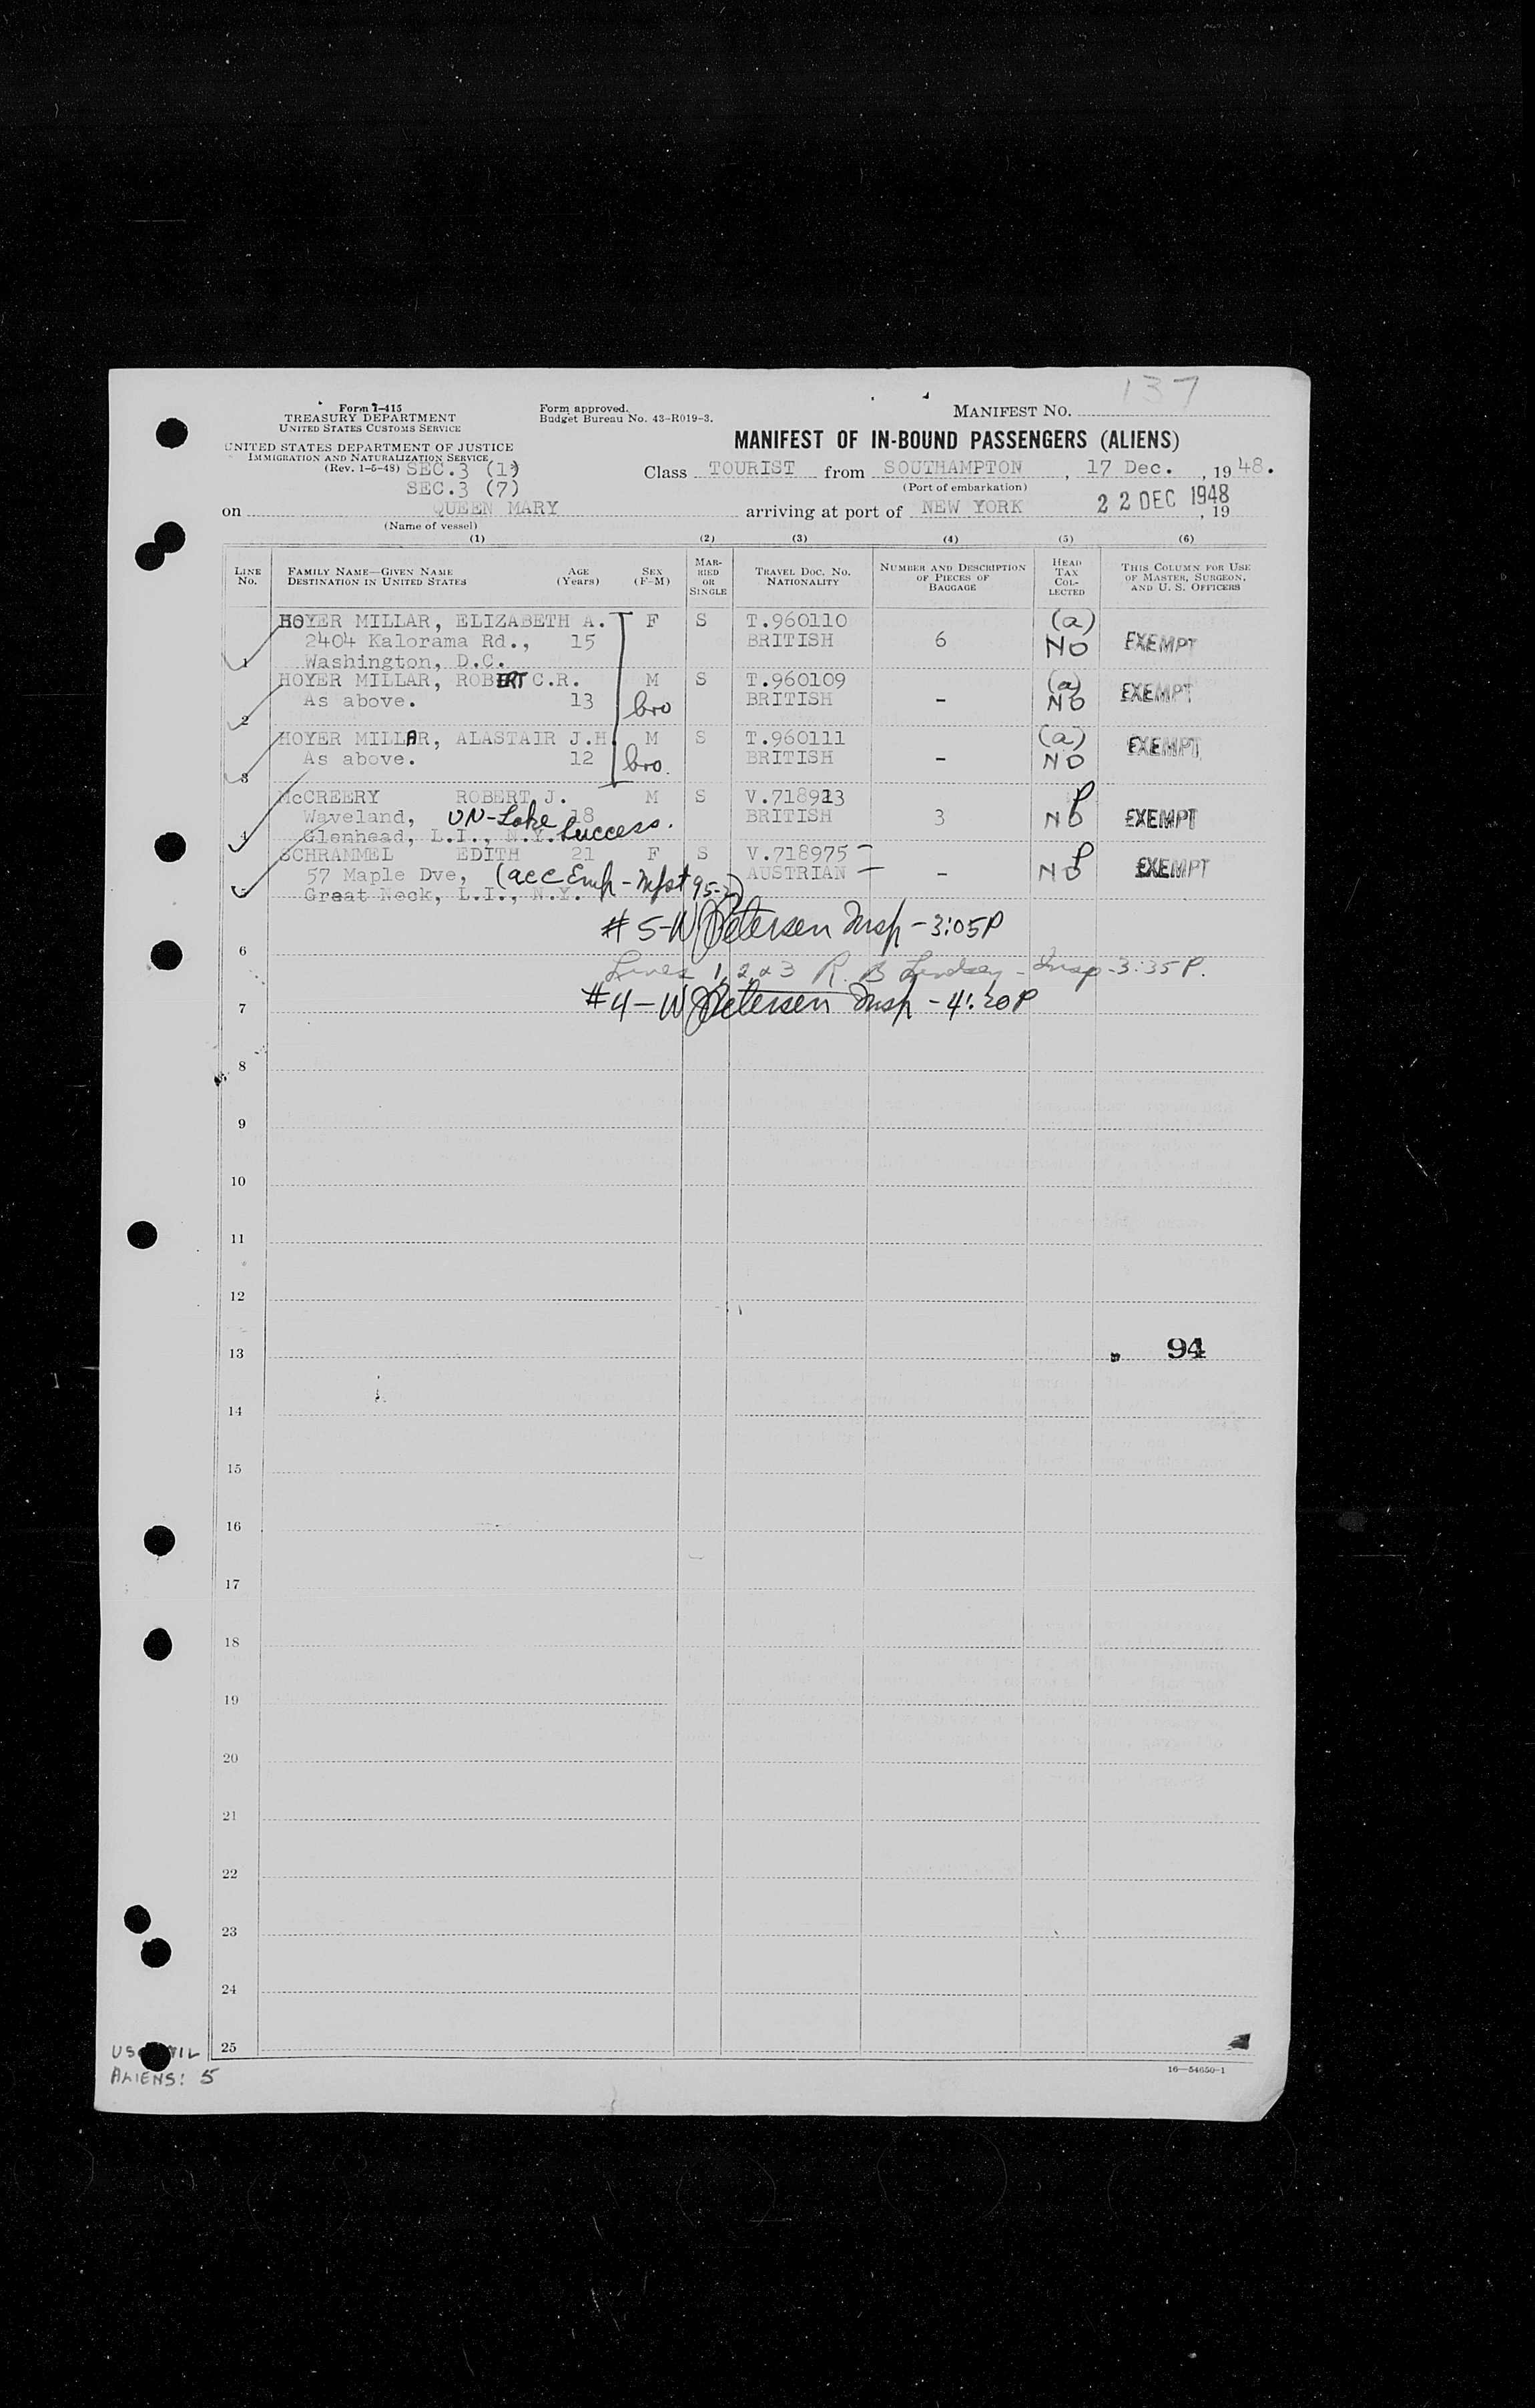 137
Form I-415
TREASURY DEPARTMENT
UNITED STATES CUSTOMS SERVICE
Form approved.
Budget Bureau No. 43-R019-3.
MANIFEST NO.
UNITED STATES DEPARTMENT OF JUSTICE
IMMIGRATION AND NATURALIZATION SERVICE
(Rev. 1-5-48) SEC.3 (1)
SEC.3 (7)
MANIFEST OF IN-BOUND PASSENGERS (ALIENS)
Class TOURIST from SOUTHAMPTON, 17 Dec., 1948.
(Port of embarkation)
on QUEEN MARY arriving at port of NEW YORK 22 DEC 1948, 19
(Name of vessel)
(1) (2) (3) (4) (5) (6)
LINE NO. FAMILY NAME—GIVEN NAME DESTINATION IN UNITED STATES AGE (Years) SEX (F-M) MARRIED OR SINGLE TRAVEL DOC. NO. NATIONALITY NUMBER AND DESCRIPTION OF PIECES OF BAGGAGE HEAD TAX COLLECTED THIS COLUMN FOR USE OF MASTER, SURGEON, AND U. S. OFFICERS
HOYER MILLAR, ELIZABETH A. F S T.960110 (a)
2404 Kalorama Rd., 15 BRITISH 6 NO EXEMPT
1 Washington, D.C.
HOYER MILLAR, ROBERT C.R. M S T.960109 (a)
2 As above. 13 bro BRITISH - NO EXEMPT
HOYER MILLAR, ALASTAIR J.H. M S T.960111 (a)
3 As above. 12 bro. BRITISH - NO EXEMPT
McCREERY ROBERT J. M S V.718913 P
Waveland, UN-Lake 18 BRITISH 3 NO EXEMPT
4 Glenhead, L.I., N.Y. Success.
SCHRAMMEL EDITH 21 F S V.718975 P
57 Maple Dve, (acc Emp - Mfst 95-2) AUSTRIAN - NO EXEMPT
5 Great Neck, L.I., N.Y.
#5-W Petersen Insp - 3:05P
6
Lines 1, 2 & 3 R. B Lindsay - Insp - 3:35 P.
#4-W Petersen Insp - 4:20P
7
8
9
10
11
12
13 94
14
15
16
17
18
19
20
21
22
23
24
25
ALIENS: 5
16—54650-1